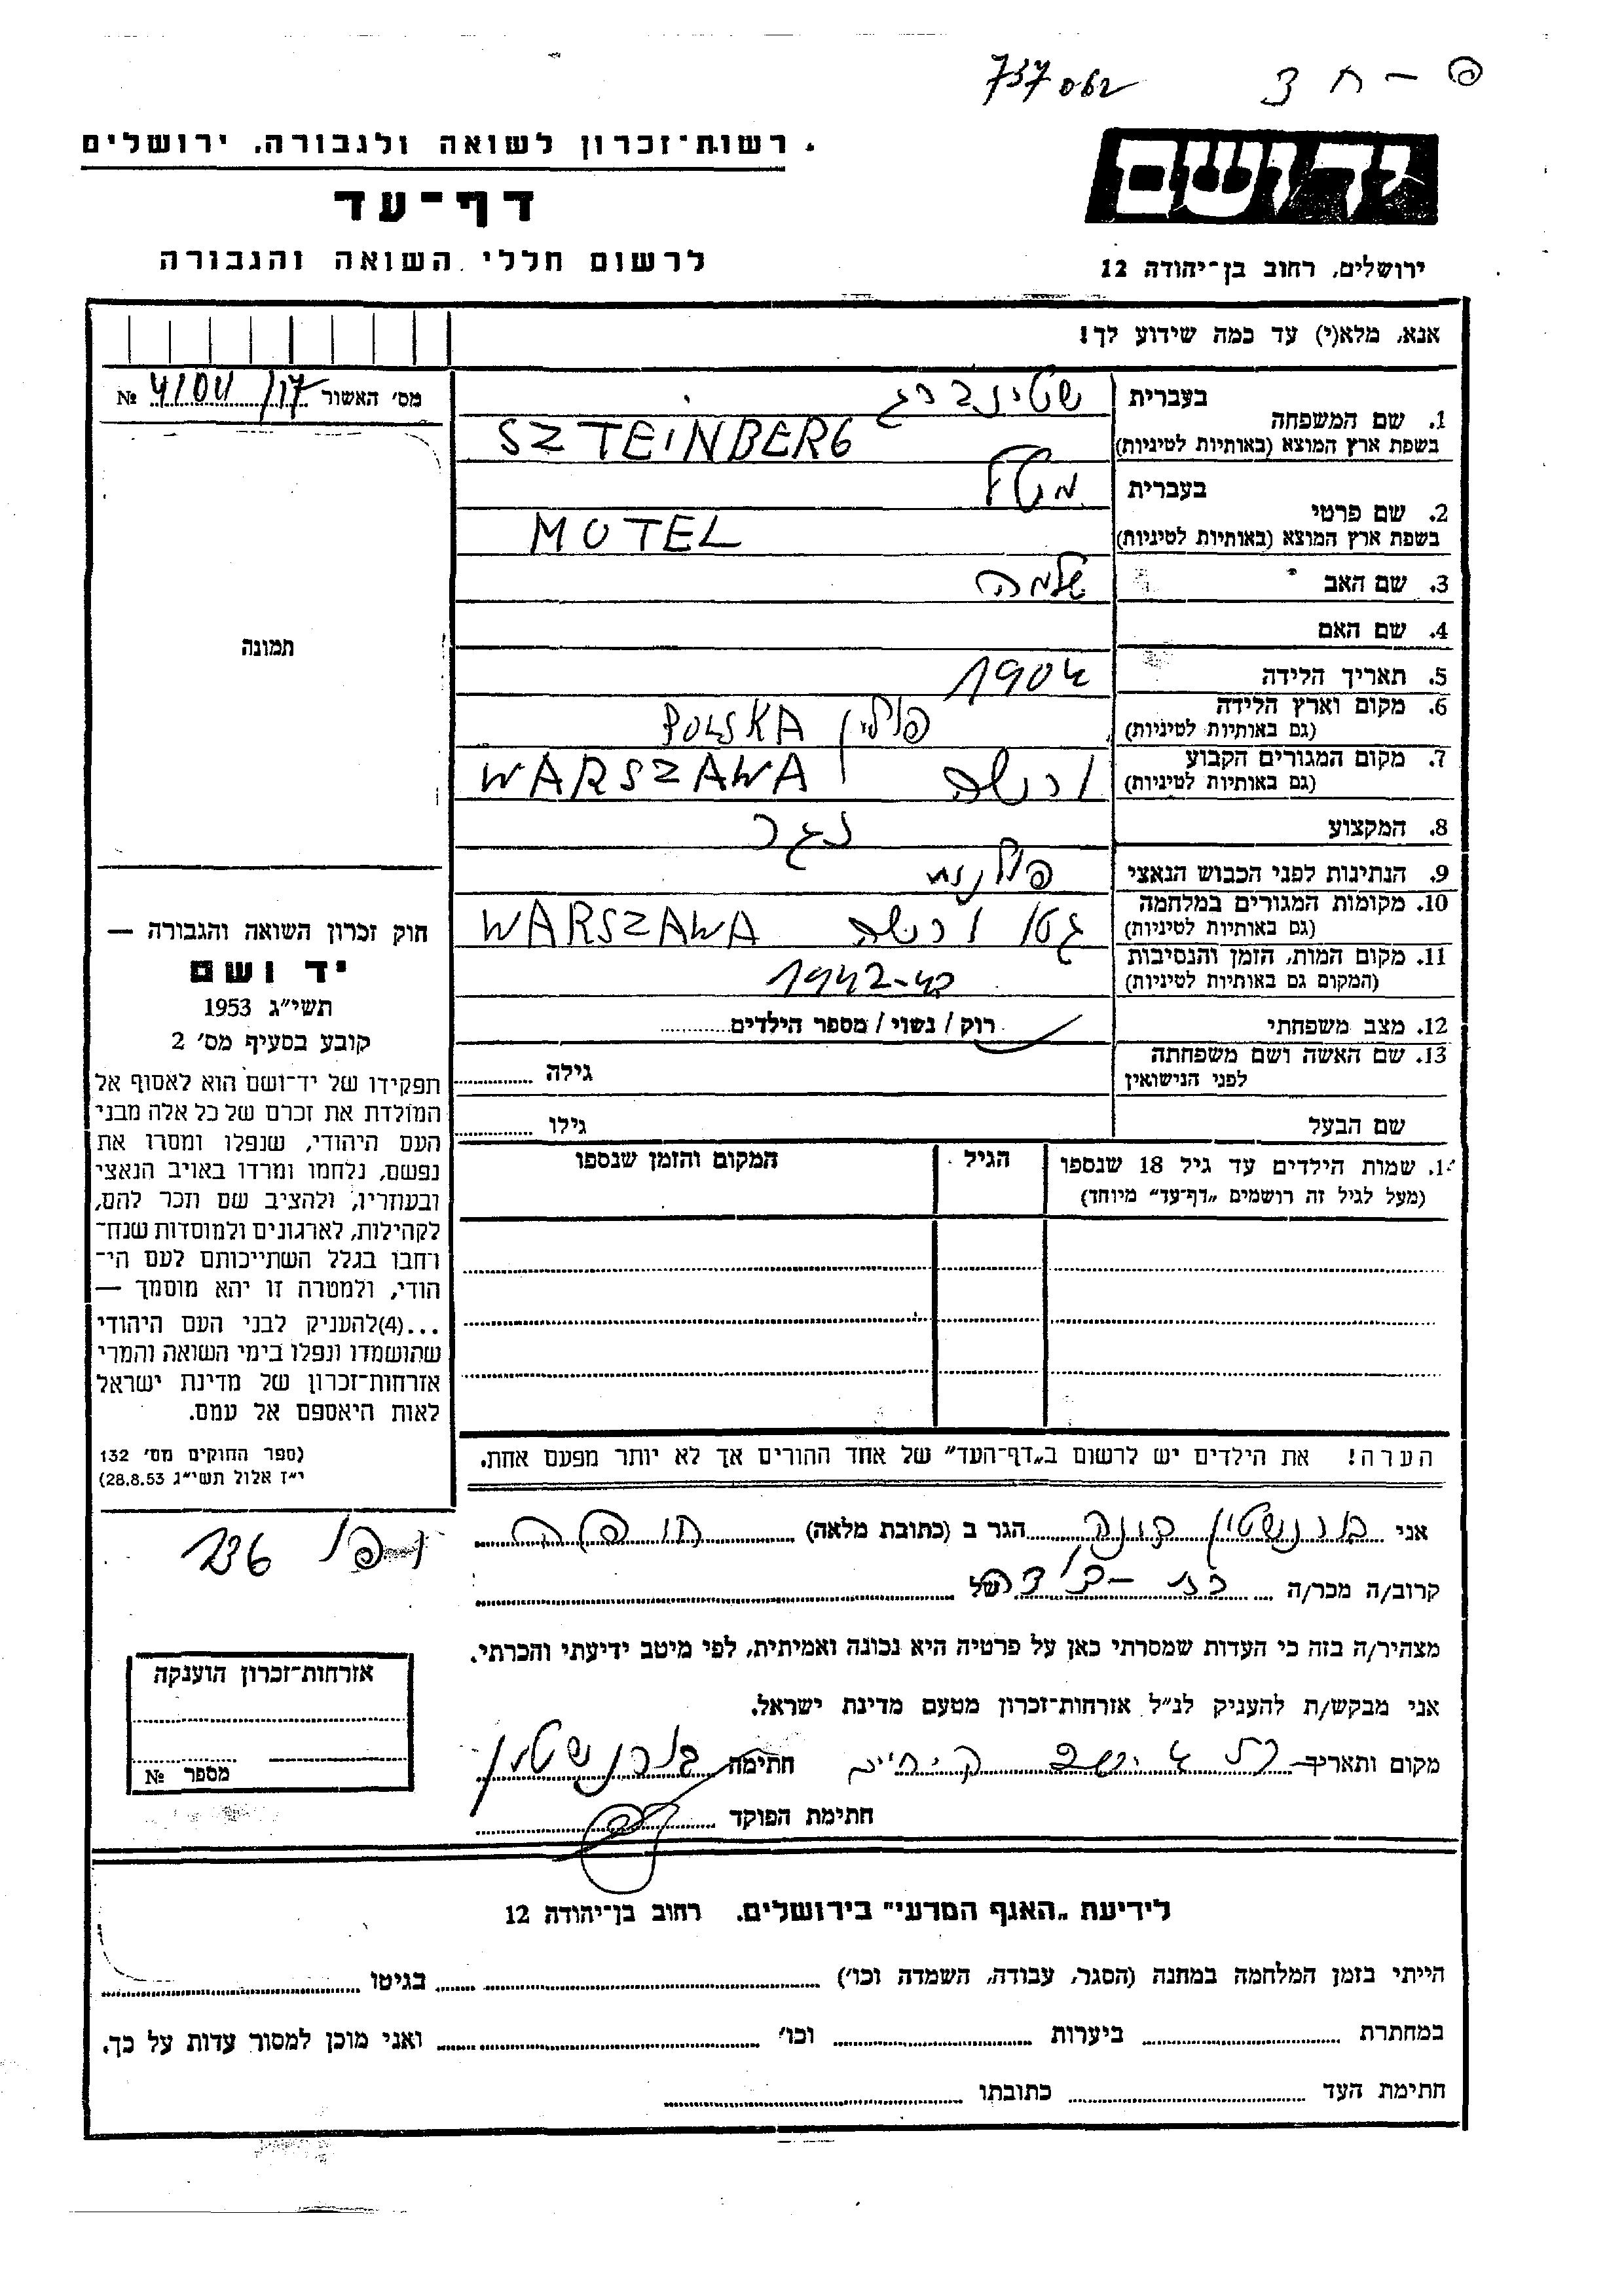 737062
רשות-זכרון לשואה ולגבורה, ירושלים
יד ושם
דף-עד
לרשום חללי השואה והגבורה
ירושלים, רחוב בן-יהודה 12
אנא, מלא(י) עד כמה שידוע לך!
מס׳ האשור 4104/17 №
1. שם המשפחה בעברית שטינברג
בשפת ארץ המוצא (באותיות לטיניות) SZTEINBERG
2. שם פרטי בעברית מוטל
בשפת ארץ המוצא (באותיות לטיניות) MOTEL
3. שם האב שלמה
4. שם האם
5. תאריך הלידה 1904
6. מקום וארץ הלידה (גם באותיות לטיניות) פולין POLSKA
7. מקום המגורים הקבוע (גם באותיות לטיניות) ורשה WARSZAWA
8. המקצוע נגר
9. הנתינות לפני הכבוש הנאצי פולנית
10. מקומות המגורים במלחמה (גם באותיות לטיניות) גטו ורשה WARSZAWA
11. מקום המות, הזמן והנסיבות (המקום גם באותיות לטיניות) 1942-43
12. מצב משפחתי רוק / נשוי / מספר הילדים
13. שם האשה ושם משפחתה לפני הנישואין גילה
שם הבעל גילו
תמונה
חוק זכרון השואה והגבורה —
יד ושם
תשי״ג 1953
קובע בסעיף מס׳ 2
תפקידו של יד-ושם הוא לאסוף אל
המולדת את זכרם של כל אלה מבני
העם היהודי, שנפלו ומסרו את
נפשם, נלחמו ומרדו באויב הנאצי
ובעוזריו, ולהציב שם וזכר להם,
לקהילות, לארגונים ולמוסדות שנח-
רחבו בגלל השתייכותם לעם הי-
הודי, ולמטרה זו יהא מוסמך —
...(4)להעניק לבני העם היהודי
שהושמדו ונפלו בימי השואה והמרי
אזרחות-זכרון של מדינת ישראל
לאות היאספם אל עמם.
(ספר החוקים מס׳ 132
י״ז אלול תשי״ג 28.8.53)
1. שמות הילדים עד גיל 18 שנספו הגיל המקום והזמן שנספו
(מעל לגיל זה רושמים „דף-עד״ מיוחד)
הערה! את הילדים יש לרשום ב„דף-העד״ של אחד ההורים אך לא יותר מפעם אחת.
אני בורנשטין הגר ב (כתובת מלאה) חיפה
136
קרוב/ה מכר/ה של
מצהיר/ה בזה כי העדות שמסרתי כאן על פרטיה היא נכונה ואמיתית, לפי מיטב ידיעתי והכרתי.
אני מבקש/ת להעניק לנ״ל אזרחות-זכרון מטעם מדינת ישראל.
מקום ותאריך חתימה בורנשטין
חתימת הפוקד
אזרחות-זכרון הוענקה
מספר №
לידיעת „האגף המדעי״ בירושלים, רחוב בן-יהודה 12
הייתי בזמן המלחמה במחנה (הסגר, עבודה, השמדה וכו׳) בגיטו
במחתרת ביערות וכו׳ ואני מוכן למסור עדות על כך.
חתימת העד כתובתו